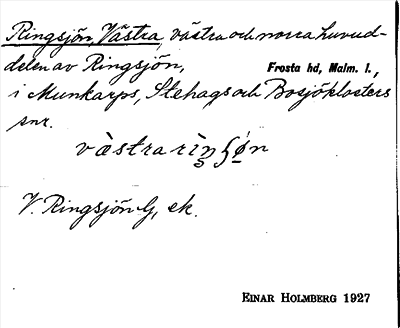 Ringsjön, Västra, västra och norra huvud-
delen av Ringsjön,
Frosta hd, Malm. l.,
i Munkarps, Stehags och Bosjöklosters
snr.
V. Ringsjön G, ek.
EINAR HOLMBERG 1927